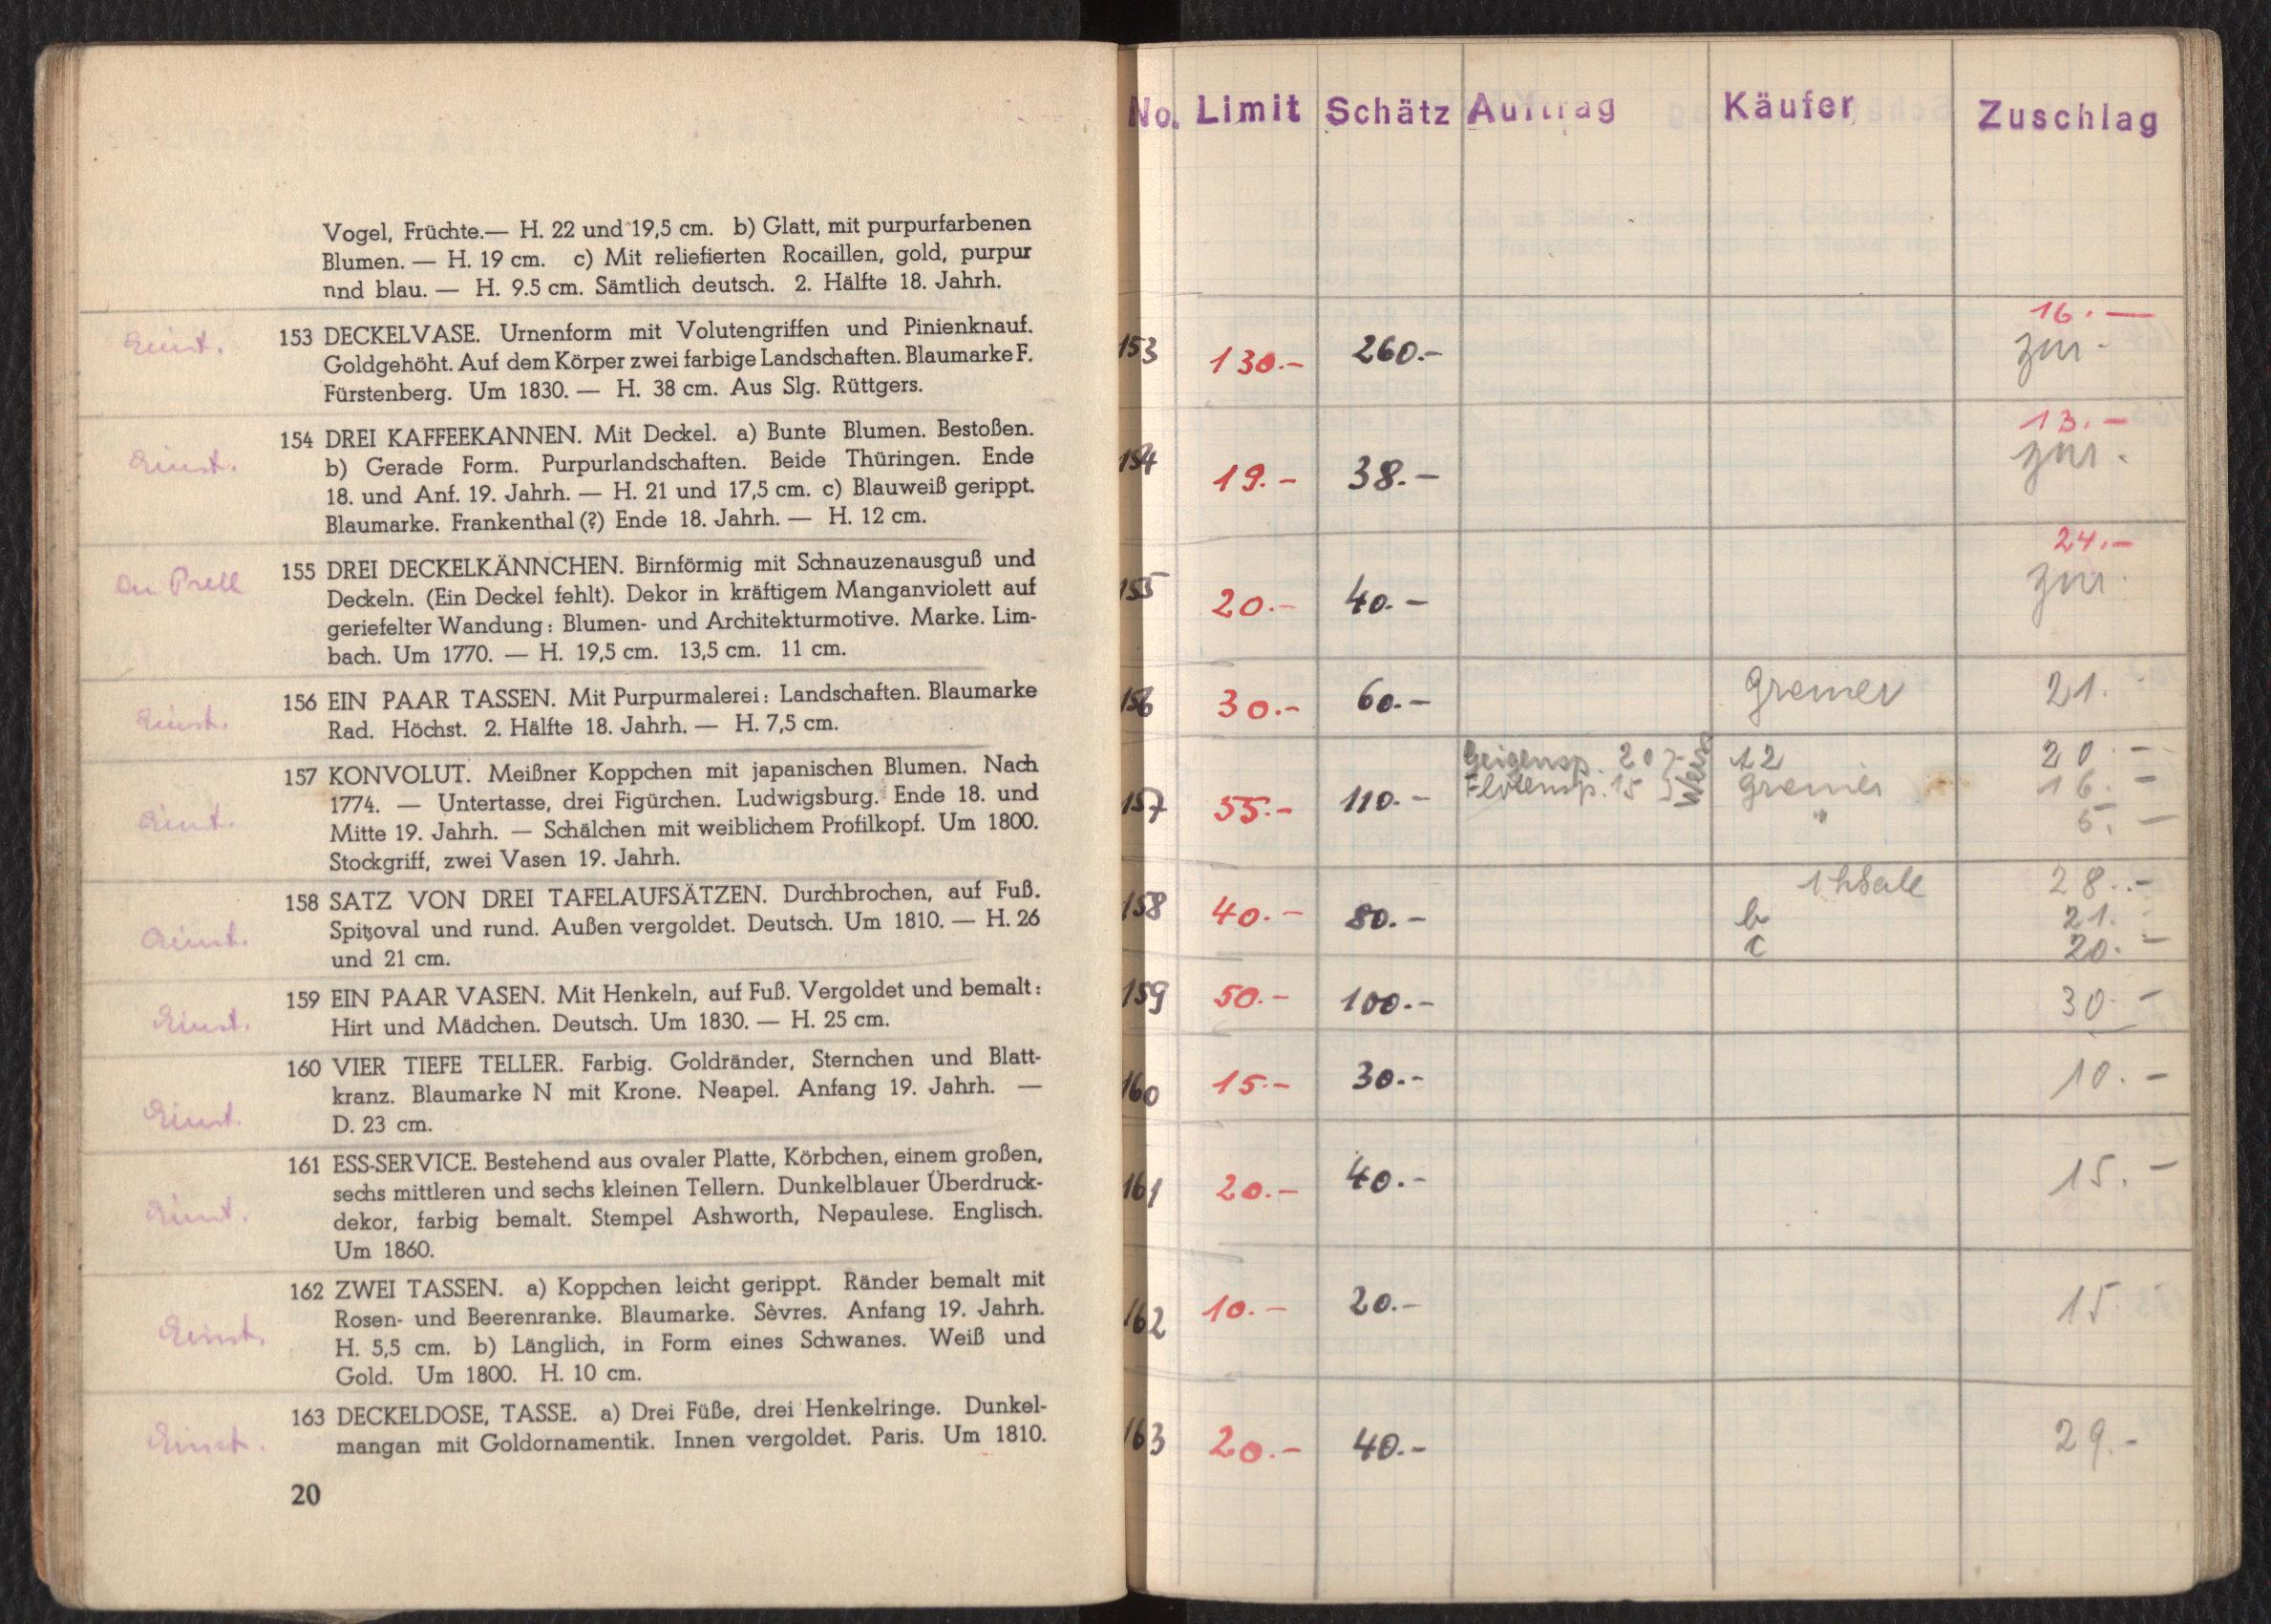 Vogel, Früchte.— H. 22 und 19,5 cm. b) Glatt, mit purpurfarbenen
Blumen. — H. 19 cm. c) Mit reliefierten Rocaillen, gold, purpur
nnd blau. — H. 9.5 cm. Sämtlich deutsch. 2. Hälfte 18. Jahrh.
153 DECKELVASE. Urnenform mit Volutengriffen und Pinienknauf.
Goldgehöht. Auf dem Körper zwei farbige Landschaften. Blaumarke F.
Fürstenberg. Um 1830. — H. 38 cm. Aus Slg. Rüttgers.
154 DREI KAFFEEKANNEN. Mit Deckel. a) Bunte Blumen. Bestoßen.
b) Gerade Form. Purpurlandschaften. Beide Thüringen. Ende
18. und Anf. 19. Jahrh. — H. 21 und 17,5 cm. c) Blauweiß gerippt.
Blaumarke. Frankenthal (?) Ende 18. Jahrh. — H. 12 cm.
155 DREI DECKELKÄNNCHEN. Birnförmig mit Schnauzenausguß und
Deckeln. (Ein Deckel fehlt). Dekor in kräftigem Manganviolett auf
geriefelter Wandung: Blumen- und Architekturmotive. Marke. Lim-
bach. Um 1770. — H. 19,5 cm. 13,5 cm. 11 cm.
156 EIN PAAR TASSEN. Mit Purpurmalerei: Landschaften. Blaumarke
Rad. Höchst. 2. Hälfte 18. Jahrh. — H. 7,5 cm.
157 KONVOLUT. Meißner Koppchen mit japanischen Blumen. Nach
1774. — Untertasse, drei Figürchen. Ludwigsburg. Ende 18. und
Mitte 19. Jahrh. — Schälchen mit weiblichem Profilkopf. Um 1800.
Stockgriff, zwei Vasen 19. Jahrh.
158 SATZ VON DREI TAFELAUFSÄTZEN. Durchbrochen, auf Fuß.
Spitzoval und rund. Außen vergoldet. Deutsch. Um 1810. — H. 26
und 21 cm.
159 EIN PAAR VASEN. Mit Henkeln, auf Fuß. Vergoldet und bemalt:
Hirt und Mädchen. Deutsch. Um 1830. — H. 25 cm.
160 VIER TIEFE TELLER. Farbig. Goldränder, Sternchen und Blatt-
kranz. Blaumarke N mit Krone. Neapel. Anfang 19. Jahrh. —
D. 23 cm.
161 ESS-SERVICE. Bestehend aus ovaler Platte, Körbchen, einem großen,
sechs mittleren und sechs kleinen Tellern. Dunkelblauer Überdruck-
dekor, farbig bemalt. Stempel Ashworth, Nepaulese. Englisch.
Um 1860.
162 ZWEI TASSEN. a) Koppchen leicht gerippt. Ränder bemalt mit
Rosen- und Beerenranke. Blaumarke. Sèvres. Anfang 19. Jahrh.
H. 5,5 cm. b) Länglich, in Form eines Schwanes. Weiß und
Gold. Um 1800. H. 10 cm.
163 DECKELDOSE, TASSE. a) Drei Füße, drei Henkelringe. Dunkel-
mangan mit Goldornamentik. Innen vergoldet. Paris. Um 1810.
20
No. Limit Schätz Auftrag Käufer Zuschlag
16.—
153 130.- 260.- zur.
13.-
154 19.- 38.- zur.
24.-
155 20.- 40.- zur.
156 30.- 60.- Gremer 21.
Geigensp. 20 12 20.-
157 55.- 110.- Flötensp. 15 Gremer 16.-
" 5.-
28.-
158 40.- 80.- b 21.
c 20.-
159 50.- 100.- 30.-
160 15.- 30.- 10.-
161 20.- 40.- 15.-
162 10.- 20.- 15.
163 20.- 40.- 29.-